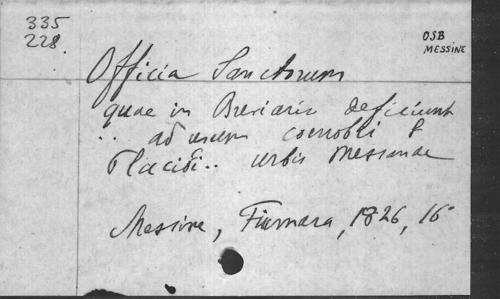 335
228.
OSB
MESSINE
Officia Sanctorum
quae in Breviario deficiunt
.. ad usum coenobii S
Placidi.. urbis Messanae
Messine, Fiumara, 1826, 16°